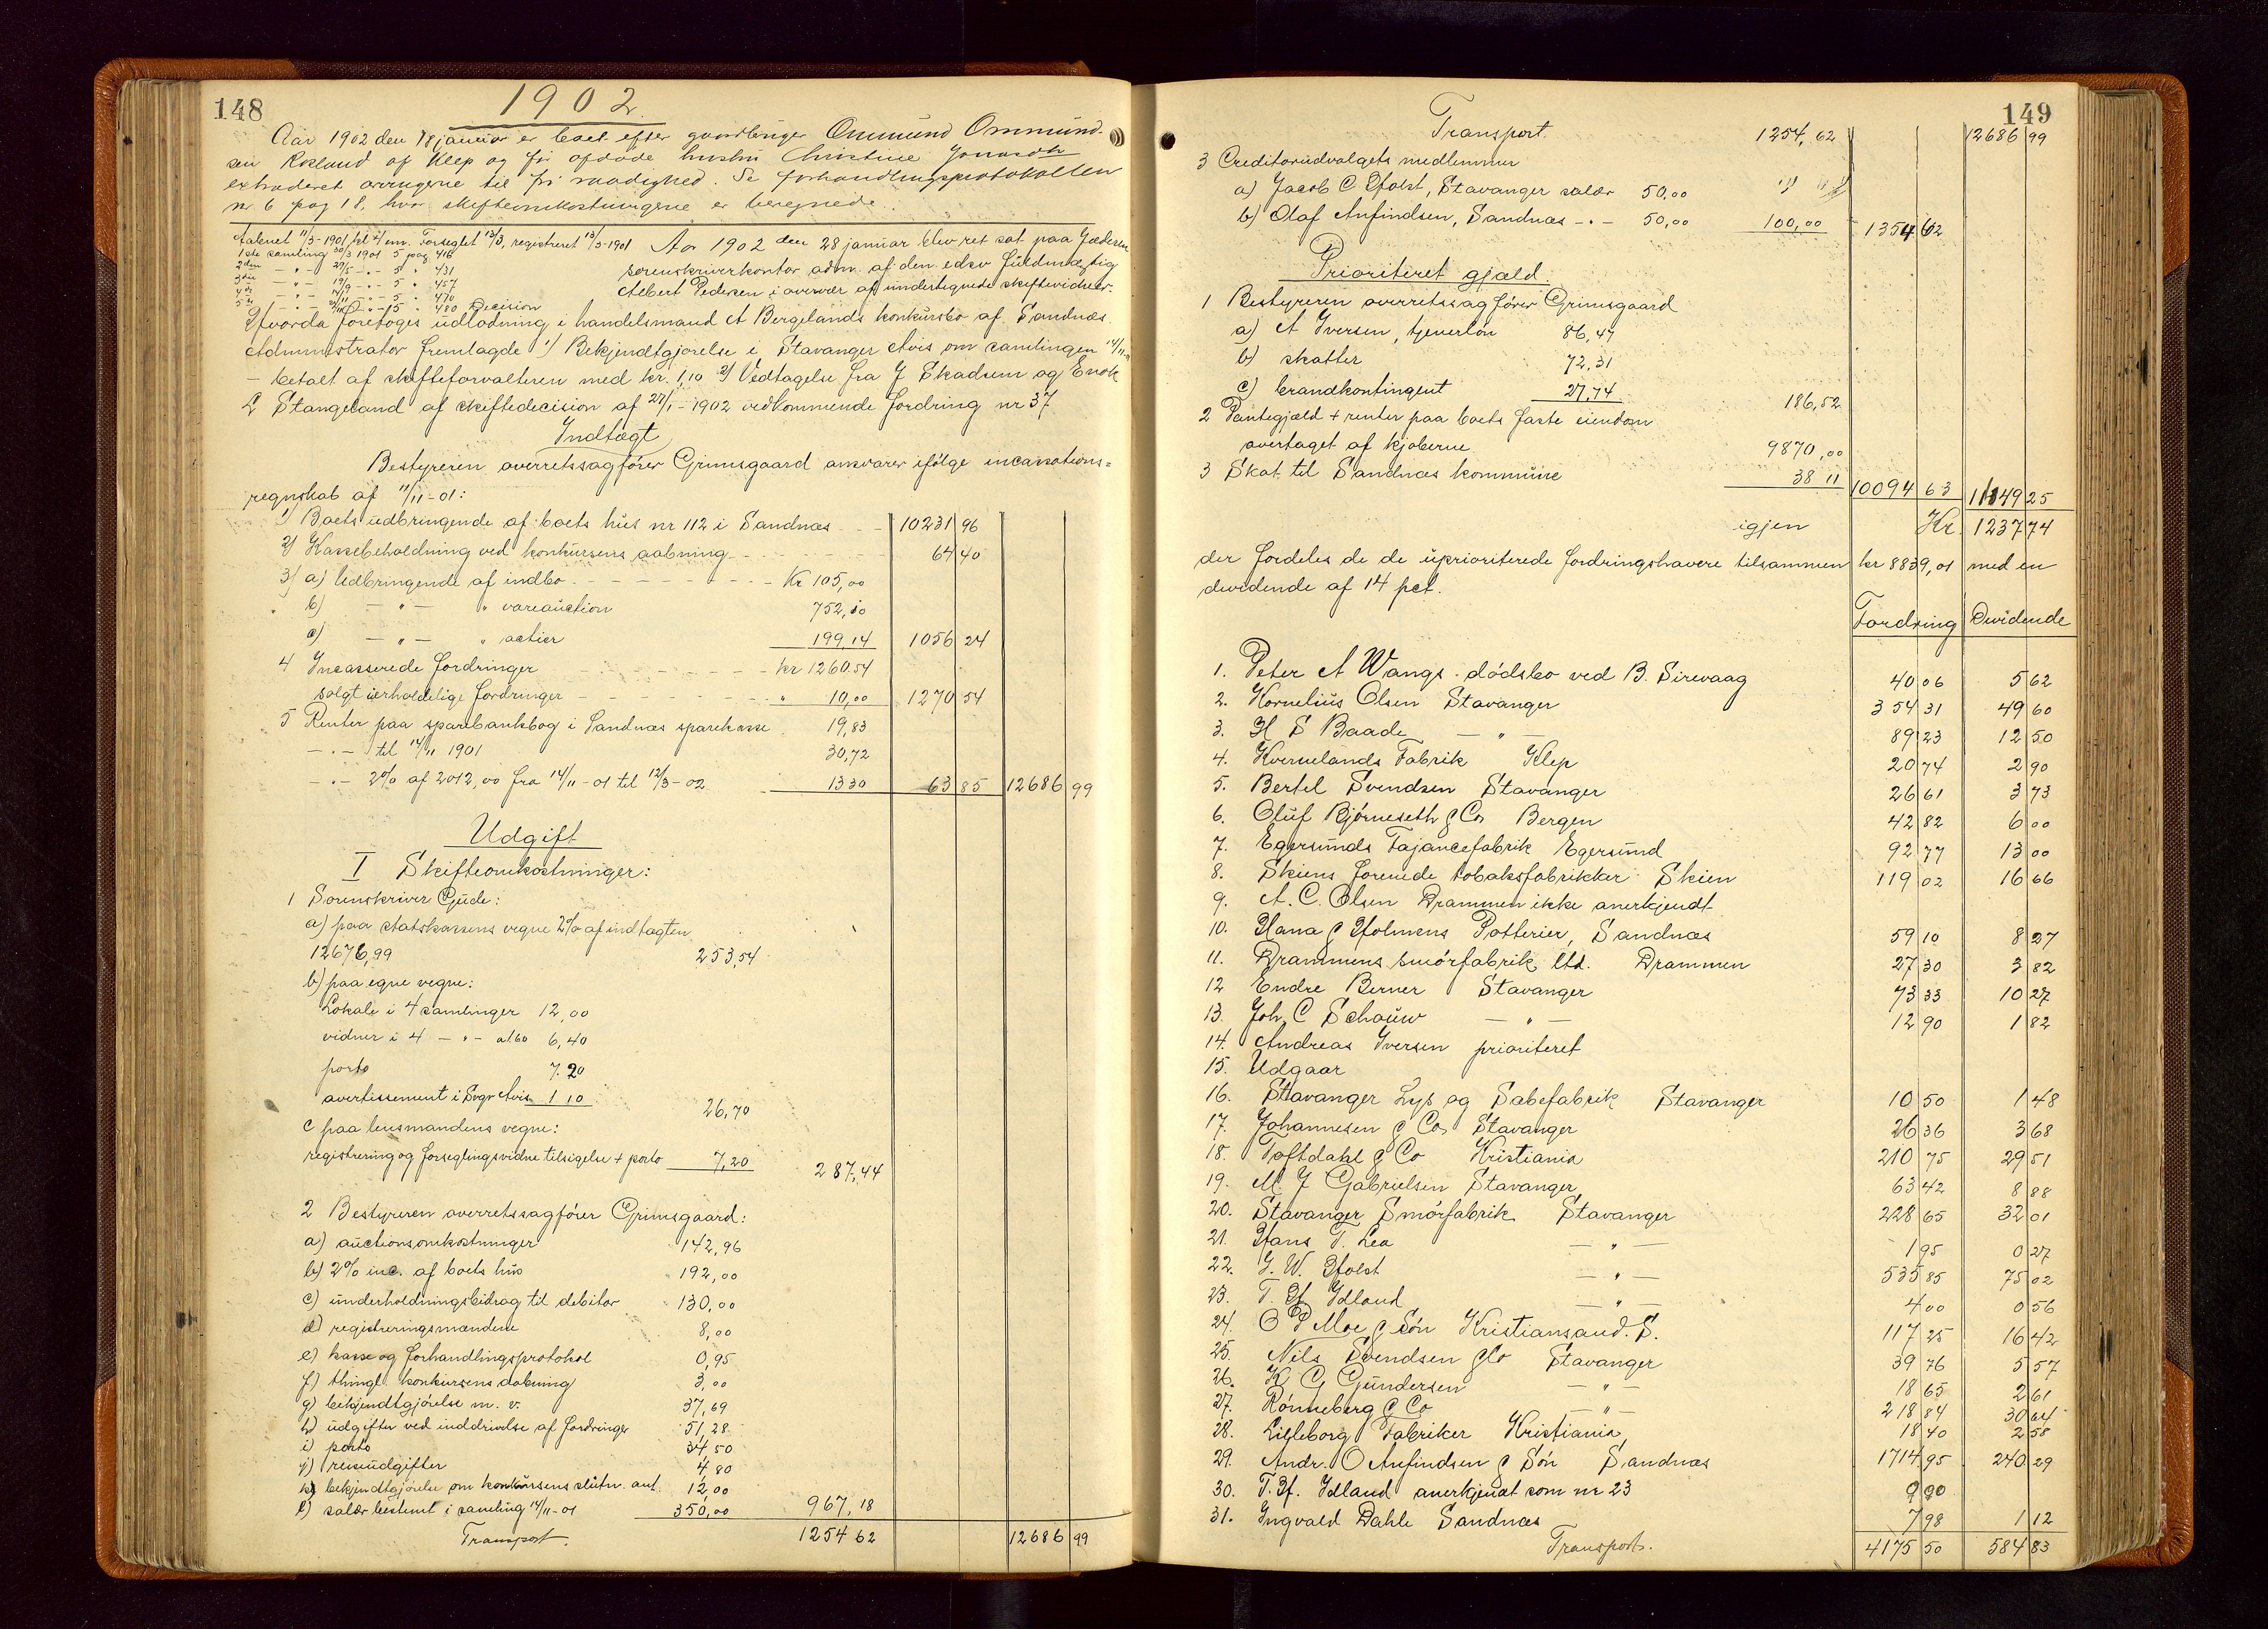 148
1902
Aar 1902 den 18 januar er boet efter gaardbruger Ommund Ommund-
sen Rosland af Klep og før afdøde hustru Christine Jonasdtr
extraderet arvingerne til fri raadighed. Se forhandlingsprotokollen
nr. 6 pag 18, hvor skifteomkostningerne er beregnede.
Aabnet 11/3-1901, kl 4 em. Forseglet 12/3, registreret 13/3-1901
1ste samling 30/3 1901 5 pag 416
2den — " — 29/5 - - 5 " 431
3die — " — 19/9 - - 5 " 457
4de — " — - - 5 " 470
5te — " — - - 5 " 480 Decision
Aar 1902 den 28 januar blev ret sat paa Jæderen
sorenskriverkontor adm. af den edsv fuldmægtig
Albert Pedersen i overvær af undertegnede skiftevidner.
Hvorda foretoges udlodning i handelsmand A Bergelands konkursbo af Sandnæs.
Administrator fremlagde 1) Bekjendtgjørelse i Stavanger Avis om samlingen 14/11
— betalt af skifteforvalteren med kr. 1,10 2) Vedtagelse fra J Skadsem og Enok
L Stangeland af skiftedecision af 27/1-1902 vedkommende fordring nr 37
Indtægt
Bestyreren overretssagfører Grimsgaard ansvarer ifølge incassations-
regnskab af 11/11-01:
1) Boets udbringende af boets hus nr 112 i Sandnæs - - 10231 96
2) Kassebeholdning ved konkursens aabning - - - - 64 40
3) a) Udbringende af indbo - - - - - Kr 105,00
b) — " — " vareauction 752,10
c) — " — " actier 199,14 1056 24
4 Incasserede fordringer - - - - - kr 1260.54
solgt uerholdelige fordringer - - - - - " 10,00 1270 54
5 Renter paa sparebankbog i Sandnæs sparekasse 19,83
— . — til 14/11 1901 30,72
— . — 2% af 2012,00 fra 14/11-01 til 12/3-02 13 30 63 85 12686 99
Udgift
I Skifteomkostninger:
1 Sorenskriver Gude:
a) paa statskassens vegne 2% af indtægten
12676,99 253,54
b) paa egne vegne:
Lokale i 4 samlinger 12,00
vidner i 4 — " — a 1.60 6,40
porto 7.20
avertissement i Svgr Avis 1 10 26,70
c paa lensmandens vegne:
registrering og forseglingsvidne tilsigelse + porto 7,20 287,44
2 Bestyreren overretssagfører Grimsgaard:
a) auctionsomkostninger 142,96
b) 2% inc. af boets hus 192,00
c) underholdningsbidrag til debitor 130,00
d) registreringsmændene 8,00
e) kasse og forhandlingsprotokol 0,95
f) thingl. konkursens aabning 3,00
g) bekjendtgjørelse m. v. 37,69
h) udgifter ved inddrivelse af fordringer 51,28
i) porto 34,50
j) reiseudgifter 4,80
k) bekjendtgjørelse om konkursens slutn. ant. 12,00
l) salær bestemt i samling 14/11-01 350,00 967,18
Transport. 1254 62 12686 99
149
Transport. 1254,62 12686 99
3 Creditorudvalgets medlemmer
a) Jacob C Holst, Stavanger salær 50,00
b) Olaf Anfindsen, Sandnæs - " - 50,00 100,00 1354 62
Prioriteret gjæld.
1 Bestyreren overretssagfører Grimsgaard
a) A Iversen, tjenerløn 86,47
b) skatter 72,31
c) brandkontingent 27,74 186,52
2 Pantegjæld + renter paa boets faste eiendom
overtaget af kjøberne 9870,00
3 Skat til Sandnæs kommune 38 11 10094 63 11449 25
igjen Kr. 1237 74
der fordeles de de uprioriterede fordringshavere tilsammen kr 8839,01 med en
dividende af 14 pct.
Fordring Dividende
1. Peter A Wangs dødsbo ved B. Sirevaag 40 06 5 62
2. Kornelius Olsen Stavanger 354 31 49 60
3. H S Baade — " — 89 23 12 50
4. Kvernelands Fabrik Klep 20 74 2 90
5. Bertel Svendsen Stavanger 26 61 3 73
6. Oluf Bjørneseth & Co Bergen 42 82 6 00
7. Egersunds Fajancefabrik Egersund 92 77 13 00
8. Skiens forenede tobaksfabrikker Skien 119 02 16 66
9. A. C. Olsen Drammen ikke anerkjendt
10. Hana & Holmens Potterier, Sandnæs 59 10 8 27
11. Drammens smørfabrik ltd. Drammen 27 30 3 82
12 Endre Berner Stavanger 73 33 10 27
13. Joh. C Schouw — " — 12 90 1 82
14. Andreas Iversen prioriteret
15. Udgaar
16. Stavanger Lys og Sæbefabrik Stavanger 10 50 1 48
17. Johannesen & Co Stavanger 26 36 3 68
18. Toftdahl & Co Kristiania 210 75 29 51
19. M. J Gabrielsen Stavanger 63 42 8 88
20. Stavanger Smørfabrik Stavanger 228 65 32 01
21. Hans T. Lea — " — 1 95 0 27
22. J. W. Holst — " — 535 85 75 02
23. T. H Idland — " — 4 00 0 56
24. O P Moe & Søn Kristiansand. S. 117 25 16 42
25. Nils Svendsen & Co Stavanger 39 76 5 57
26. K G Gundersen — " — 18 65 2 61
27. Rønneberg & Co — " — 218 84 30 64
28. Lilleborg Fabriker Kristiania 18 40 2 58
29. Andr. O Anfindsen & Søn Sandnæs 1714 95 240 29
30. T. H. Idland anerkjendt som nr 23 9 90
31. Ingvald Dahle Sandnæs 7 98 1 12
Transport. 4175 50 584 83